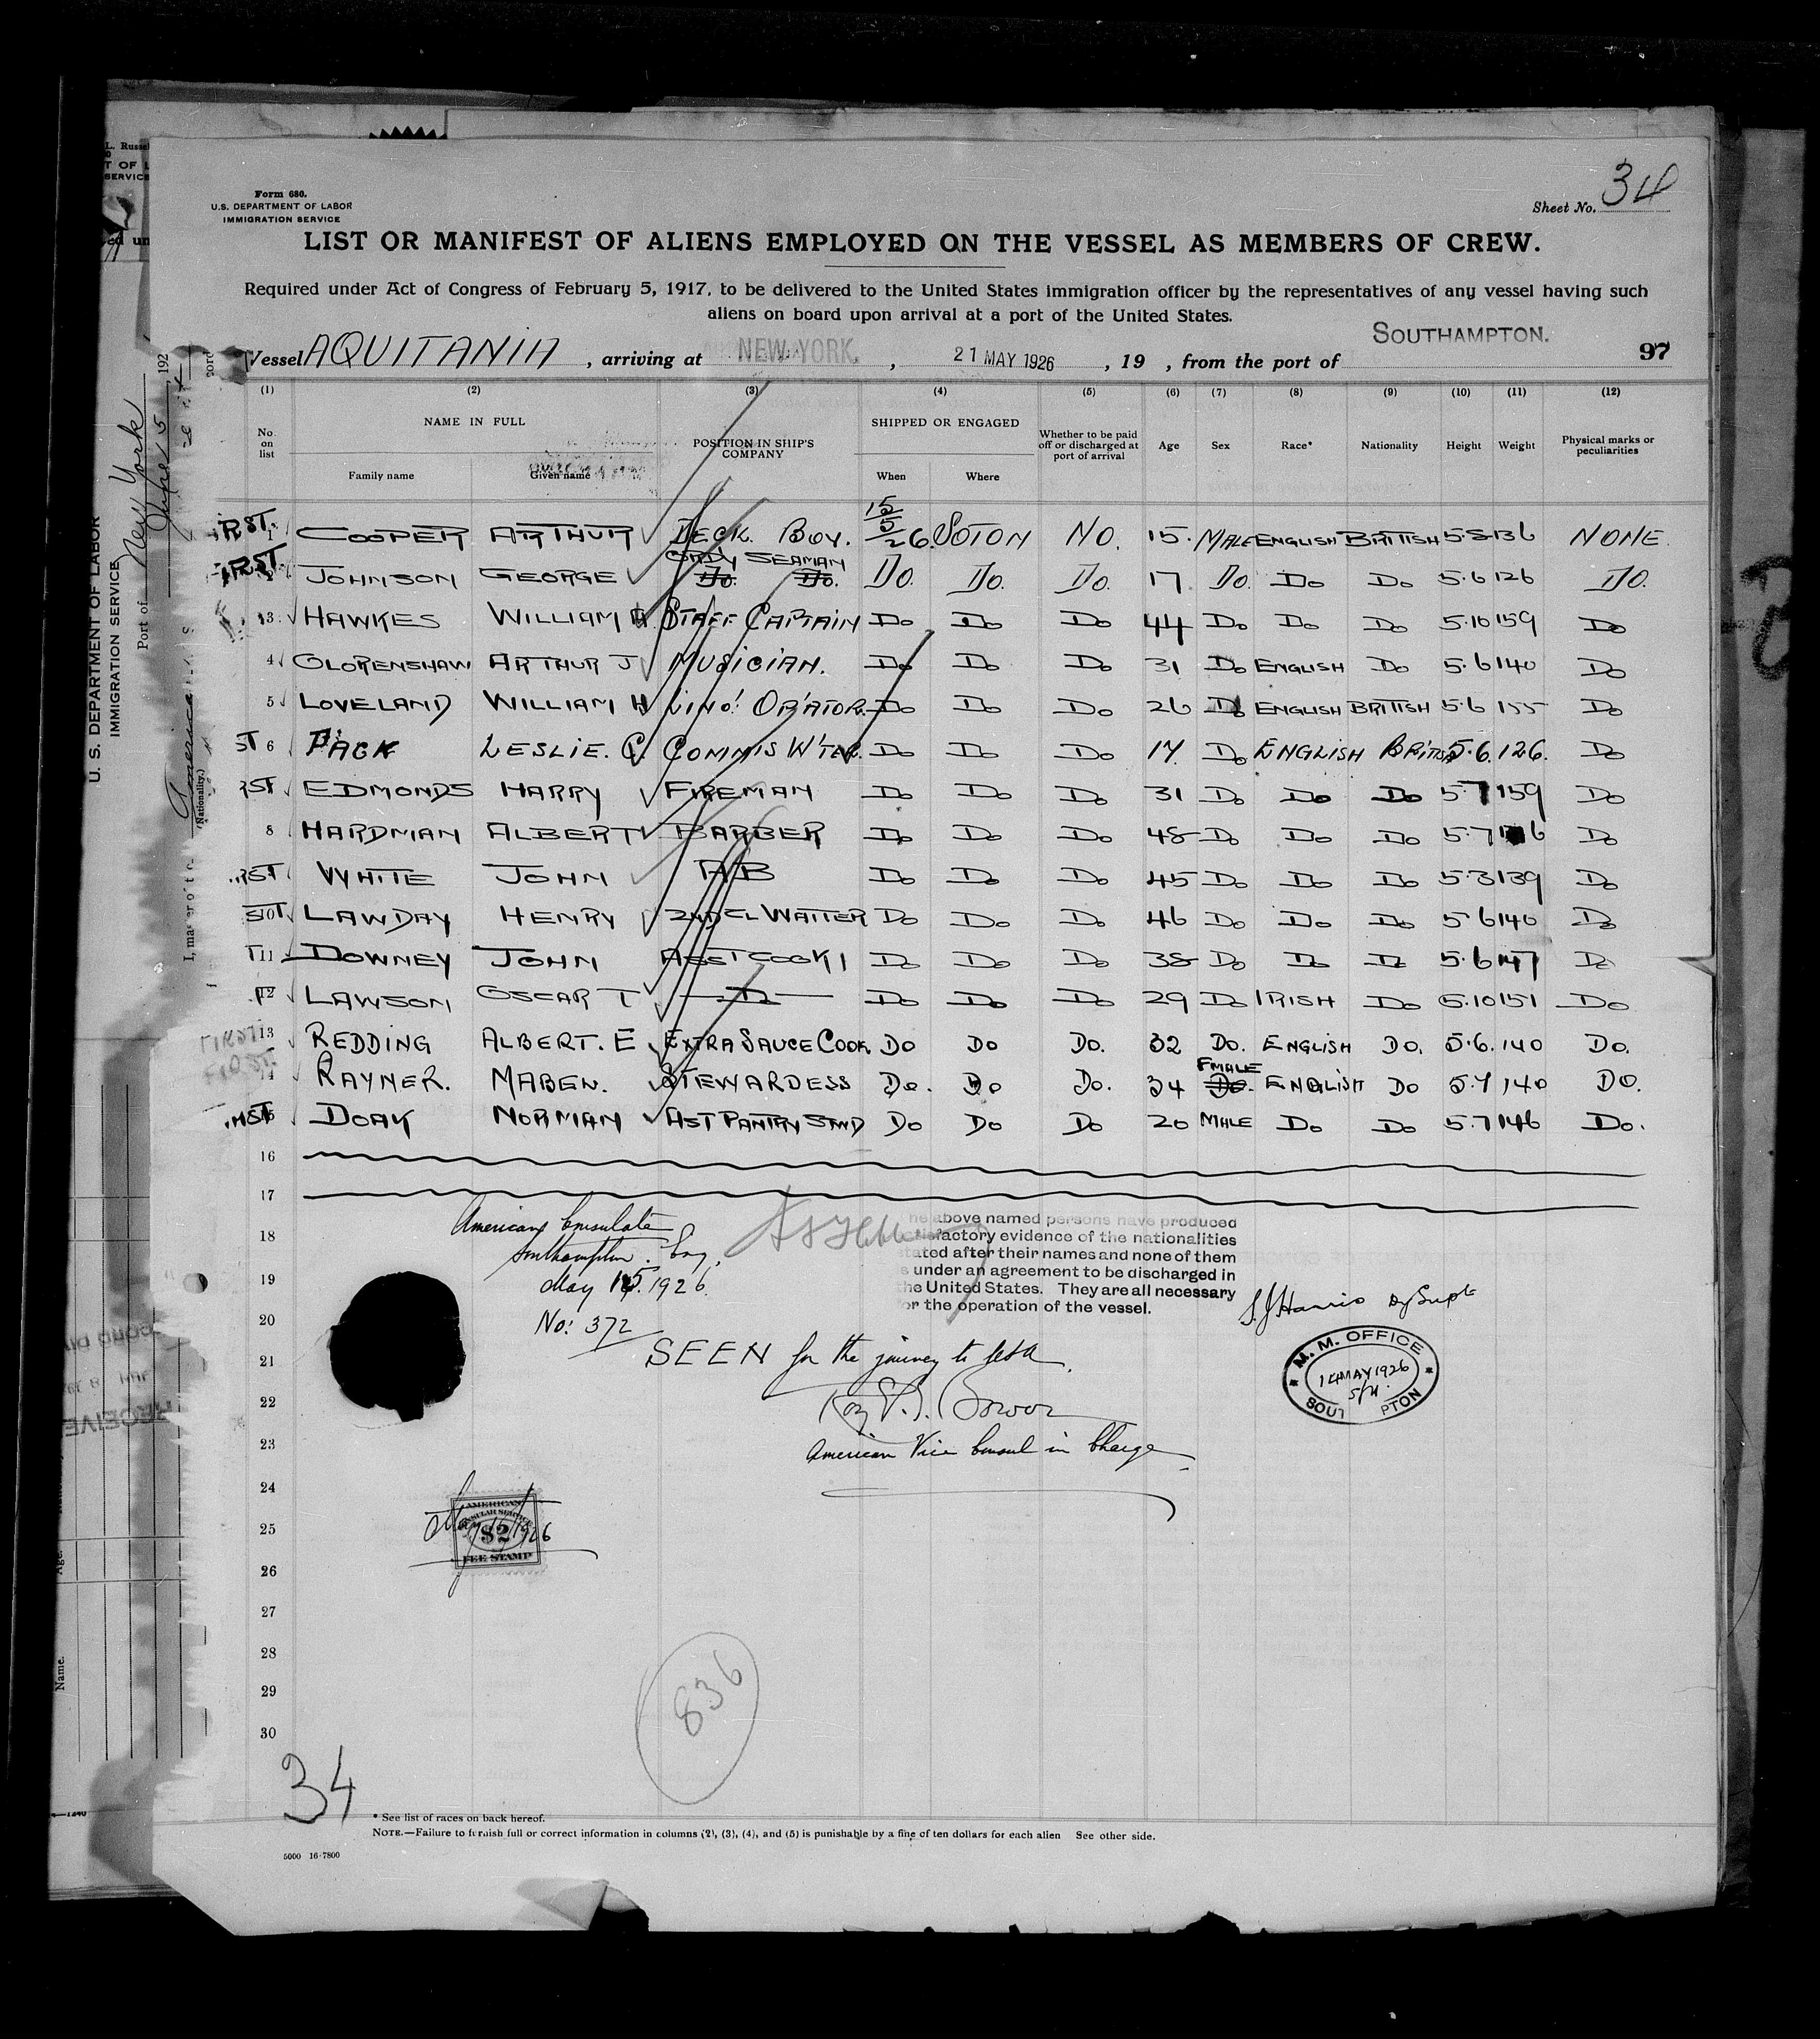 Form 680.
U.S. DEPARTMENT OF LABOR
IMMIGRATION SERVICE
Sheet No. 34
LIST OR MANIFEST OF ALIENS EMPLOYED ON THE VESSEL AS MEMBERS OF CREW.
Required under Act of Congress of February 5, 1917, to be delivered to the United States immigration officer by the representatives of any vessel having such
aliens on board upon arrival at a port of the United States.
Vessel AQUITANIA , arriving at NEW YORK. , 21 MAY 1926 , 19 , from the port of SOUTHAMPTON. 97
(1) (2) (3) (4) (5) (6) (7) (8) (9) (10) (11) (12)
No. on list NAME IN FULL POSITION IN SHIP'S COMPANY SHIPPED OR ENGAGED Whether to be paid off or discharged at port of arrival Age Sex Race* Nationality Height Weight Physical marks or peculiarities
Family name Given name When Where
1 COOPER ARTHUR DECK BOY. 15/5/26. SOTON NO. 15. MALE ENGLISH BRITISH 5.8 136 NONE.
JOHNSON GEORGE SEAMAN Do. Do. Do. Do. Do. 17 Do. Do Do 5.6 126 Do.
3. HAWKES WILLIAM STAFF CAPTAIN Do Do Do 44 Do Do Do 5.10 159 Do
4 GLORENSHAW ARTHUR J MUSICIAN. Do Do Do 31 Do ENGLISH Do 5.6 140 Do
5 LOVELAND WILLIAM H LINO' OP'ATOR. Do Do Do 26 Do ENGLISH BRITISH 5.6 155 Do
ST 6 PACK LESLIE. C. COMMIS W'TER. Do Do Do 17. Do ENGLISH BRITISH 5.6. 126. Do
ST EDMONDS HARRY FIREMAN Do Do Do 31 Do Do Do 5.7 159 Do
8 HARDMAN ALBERT BARBER Do Do Do 48 Do Do Do 5.7 Do
RST WHITE JOHN AB Do Do Do 45 Do Do Do 5.3 139 Do
10 LAWDAY HENRY 2ND CL WAITER Do Do Do 46 Do Do Do 5 6 140 Do
11 DOWNEY JOHN ASST COOK Do Do Do 38 Do Do Do 5.6 147 Do
12 LAWSON OSCAR T Do Do Do Do 29 Do IRISH Do 5.10 151 Do
13 REDDING ALBERT. E EXTRA SAUCE COOK Do Do Do. 32 Do. ENGLISH Do. 5.6. 140 Do.
14 RAYNER. MABEN. STEWARDESS Do. Do Do. 34 FMALE Do. ENGLISH Do 5.7 140 Do.
DOAK NORMAN AST PANTRY STWD Do Do Do 20 MALE Do Do 5.7 146 Do.
16
17
18
19
20
21
22
23
24
25
26
27
28
29
30
American Consulate
Southampton. Eng.
May 15. 1926.
No: 372
the above named persons have produced
satisfactory evidence of the nationalities
stated after their names and none of them
s under an agreement to be discharged in
the United States. They are all necessary
or the operation of the vessel.
S.J Harris Dy Supt
M. M. OFFICE
14 MAY 1926
SOUT PTON
SEEN for the journey to USA.
American Vice Consul in Charge
AMERICAN
CONSULAR SERVICE
$2
FEE STAMP
836
34
* See list of races on back hereof.
NOTE.—Failure to furnish full or correct information in columns (2), (3), (4), and (5) is punishable by a fine of ten dollars for each alien See other side.
5000 16-7800
L. Russel
U. S. DEPARTMENT OF LABOR
IMMIGRATION SERVICE
Port of New York
June 5 192
(Nationality.)
Name.
Age.